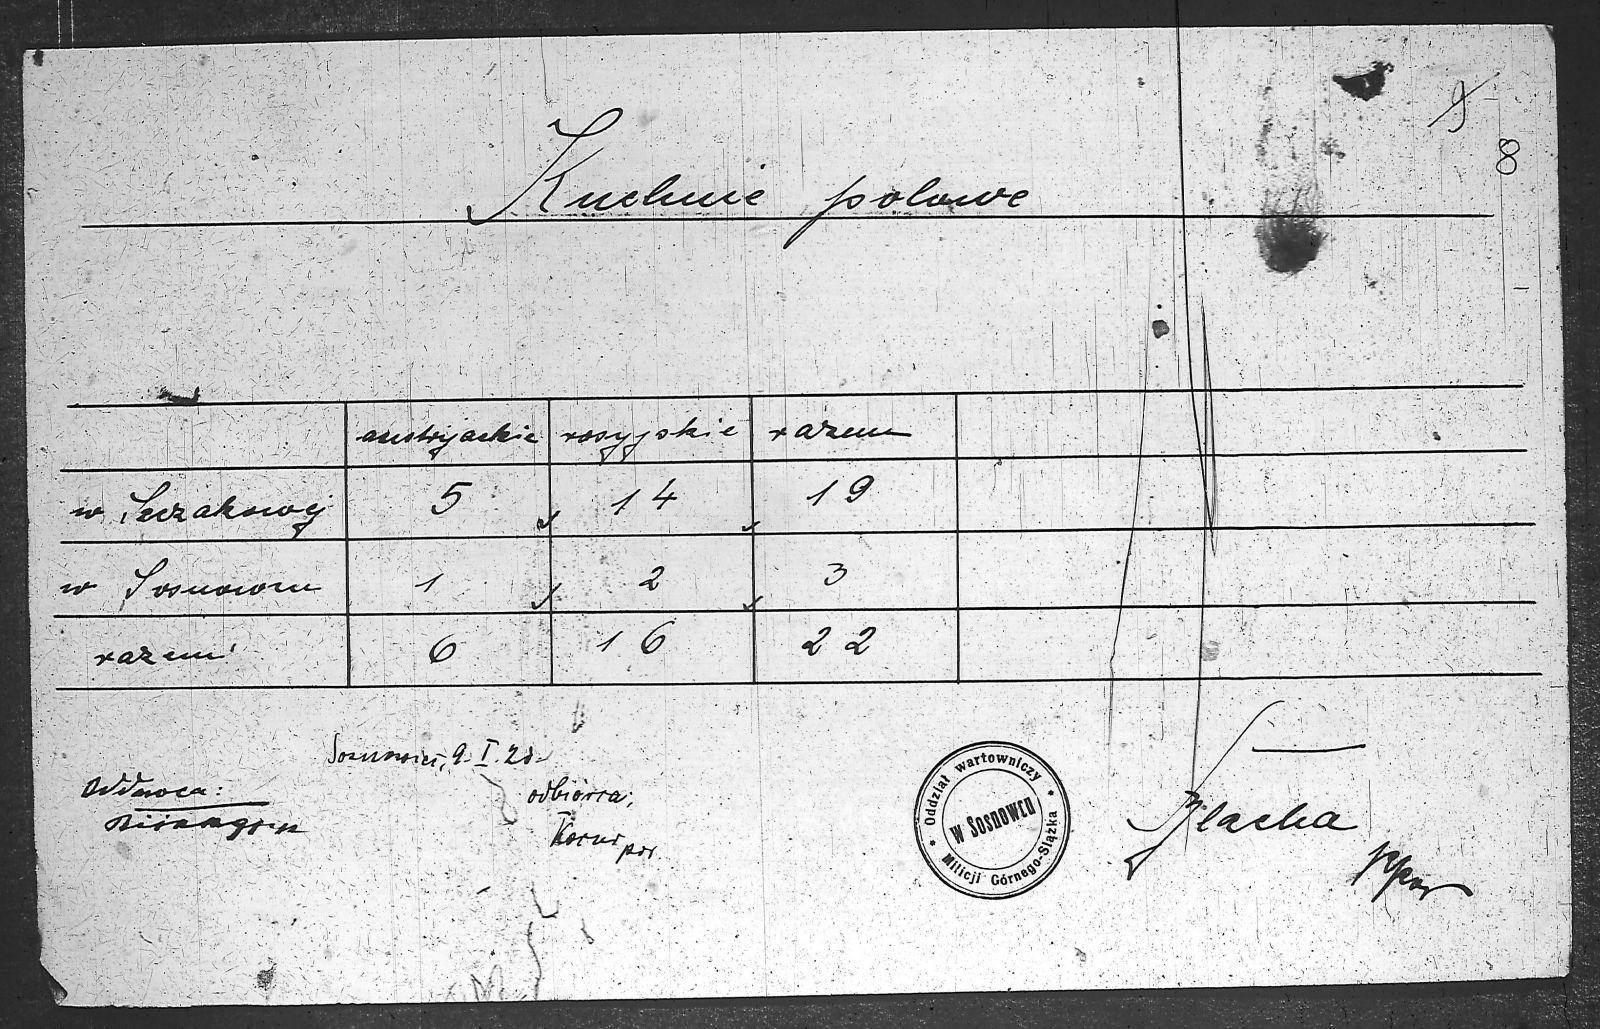 9
8
Kuchnie polowe
austryjackie rosyjskie razem
w Szczakowej 5 14 19
w Sosnowcu 1 2 3
razem 6 16 22
Sosnowiec, 9. I. 20.
Oddawca:
odbiorca:
por
Oddział wartowniczy
Milicji Górnego-Slązka
w Sosnowcu
Blacha
ppor